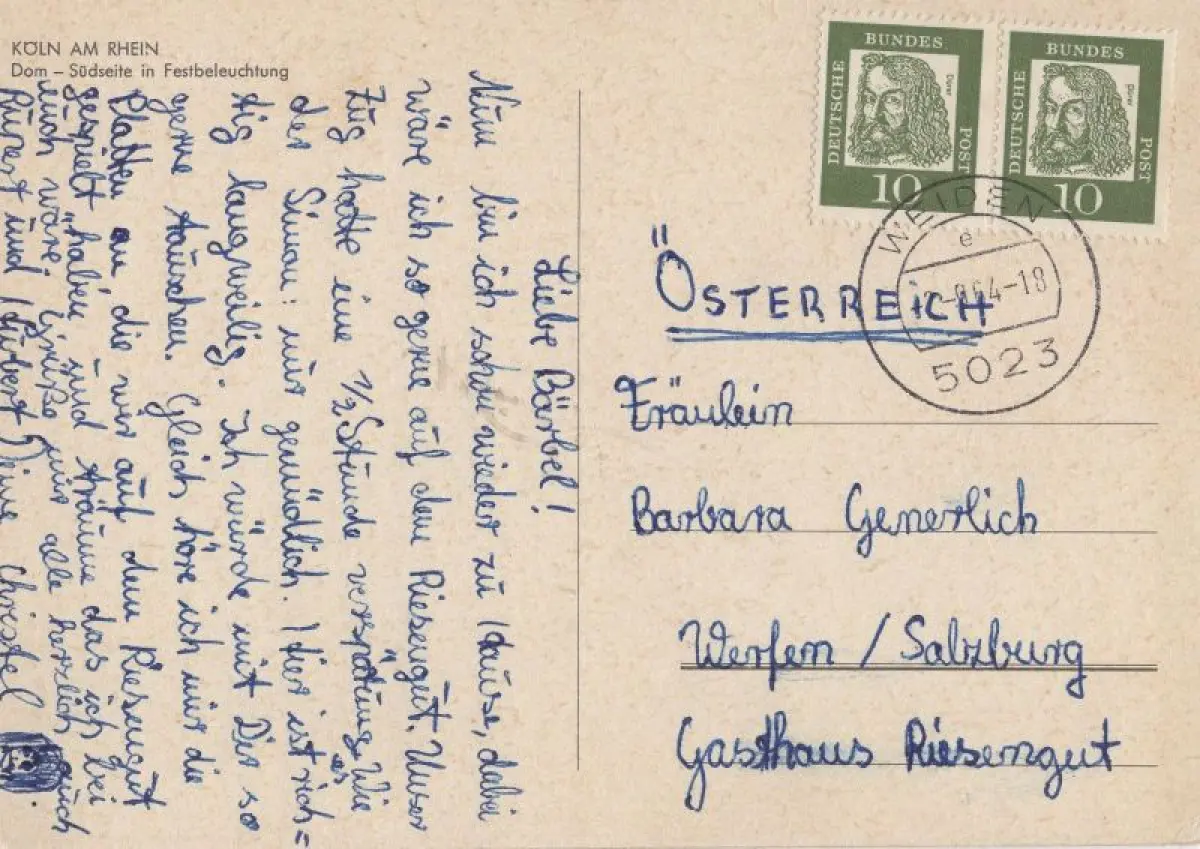 KÖLN AM RHEIN
Dom – Südseite in Festbeleuchtung
Liebe Bärbel!
Nun bin ich schon wieder zu Hause, dabei
wäre ich so gerne auf dem Riesengut. Unser
Zug hatte eine 1/2 Stunde verspätung. Wie
der Simon: nur gemüdlich. Hier ist es rich=
tig langweilig. Ich würde mit Dir so
gerne tauschen. Gleich höre ich mir die
Platten an die wir auf dem Riesengut
gespielt haben und träume das ich bei
euch wäre. Grüße mir alle herzlich auch
Rupert und Hubert Deine Christel
DEUTSCHE BUNDES POST
Dürer
10
DEUTSCHE BUNDES POST
Dürer
10
WEIDEN
e
64-18
5023
ÖSTERREiCH
Fräulein
Barbara Generlich
Werfen / Salzburg
Gasthaus Riesengut